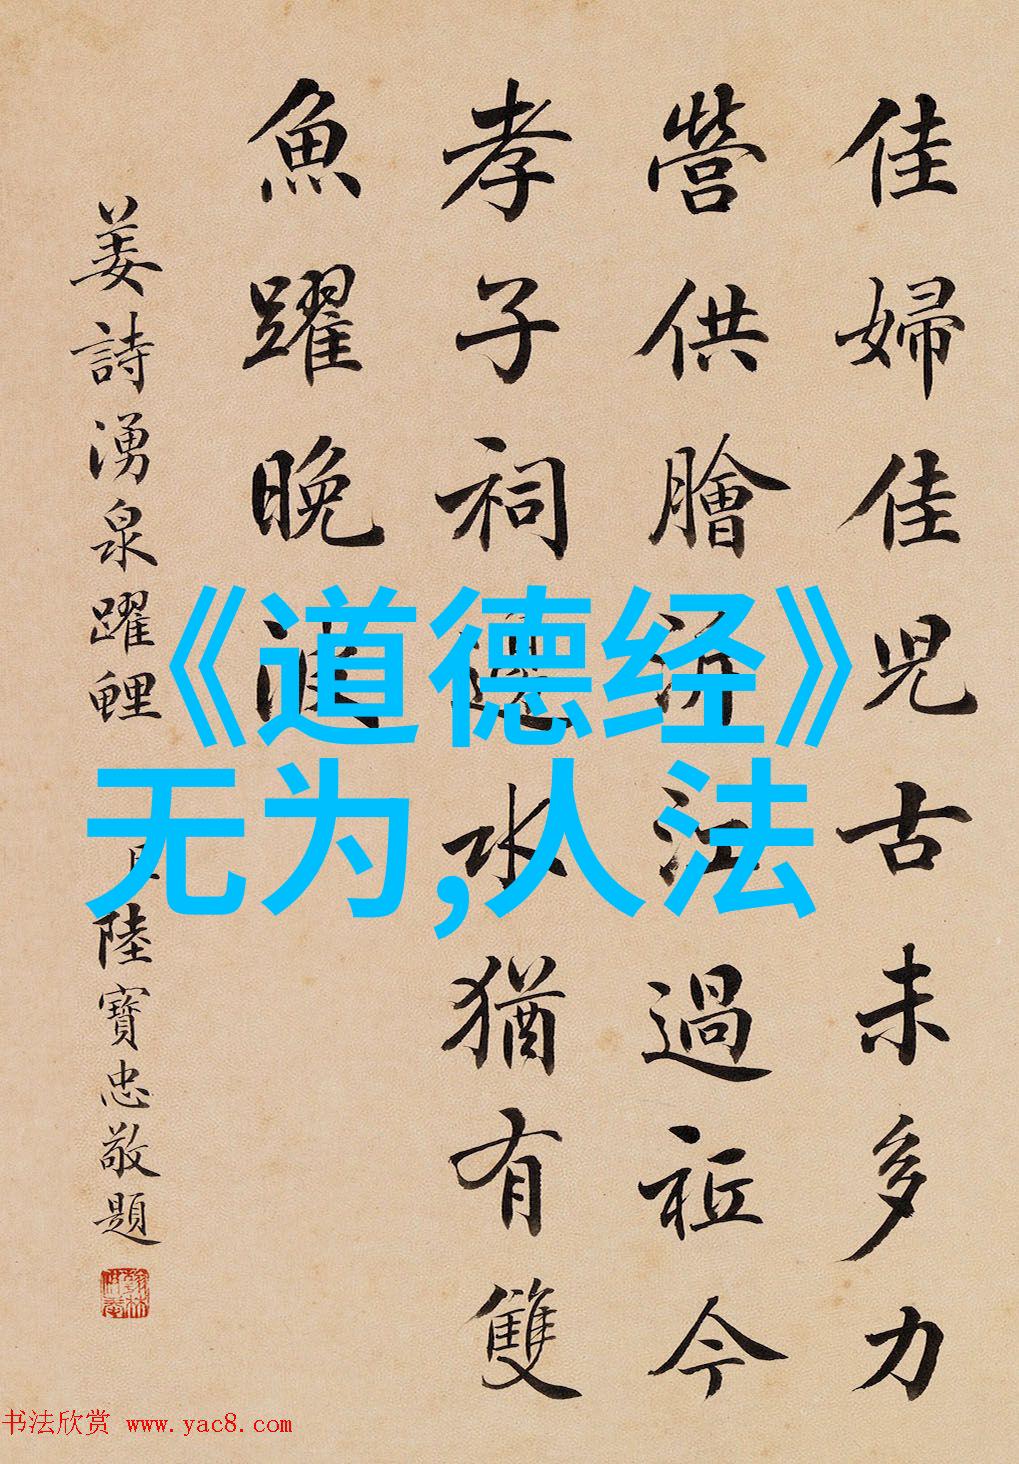 佳婦佳兒古未多力
營供膾泝江過祉今
孝子祠邊水猶有雙
魚躍晚波
姜詩湧泉躍鯉
臣陸寶忠敬題
《道德经》
无为,人法
书法欣赏 www.yac8.com